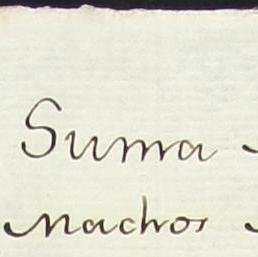 Suma -
Machos -